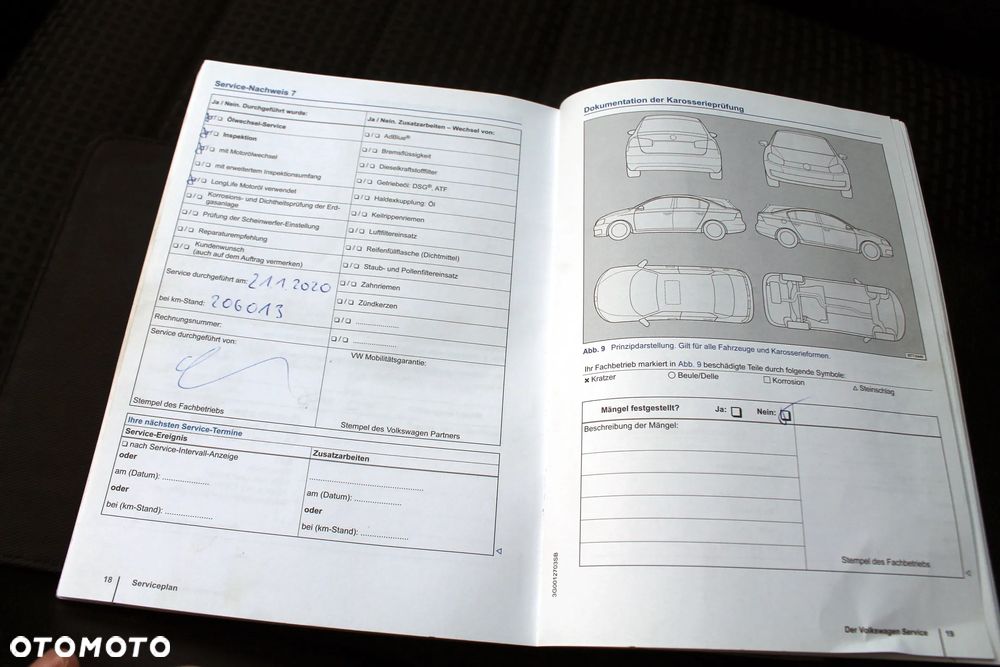 Service-Nachweis 7
Ja / Nein. Durchgeführt wurde:
Ölwechsel-Service
Inspektion
mit Motorölwechsel
mit erweitertem Inspektionsumfang
LongLife Motoröl verwendet
Korrosions- und Dichtheitsprüfung der Erd-
gasanlage
Prüfung der Scheinwerfer-Einstellung
Reparaturempfehlung
Kundenwunsch
(auch auf dem Auftrag vermerken)
Ja / Nein. Zusatzarbeiten – Wechsel von:
AdBlue®
Bremsflüssigkeit
Dieselkraftstofffilter
Getriebeöl: DSG®, ATF
Haldexkupplung: Öl
Keilrippenriemen
Luftfiltereinsatz
Reifenfüllflasche (Dichtmittel)
Staub- und Pollenfiltereinsatz
Zahnriemen
Zündkerzen
Service durchgeführt am: 21.1.2020
bei km-Stand: 206013
Rechnungsnummer:
Service durchgeführt von:
Stempel des Fachbetriebs
VW Mobilitätsgarantie:
Stempel des Volkswagen Partners
Ihre nächsten Service-Termine
Service-Ereignis
nach Service-Intervall-Anzeige
oder
am (Datum): ....................
oder
bei (km-Stand): ....................
Zusatzarbeiten
am (Datum): ....................
oder
bei (km-Stand): ....................
18 Serviceplan
Dokumentation der Karosserieprüfung
Abb. 9 Prinzipdarstellung. Gilt für alle Fahrzeuge und Karosserieformen.
Ihr Fachbetrieb markiert in Abb. 9 beschädigte Teile durch folgende Symbole:
Kratzer Beule/Delle Korrosion Steinschlag
Mängel festgestellt? Ja: Nein:
Beschreibung der Mängel:
Stempel des Fachbetriebs
3G0012703SB
Der Volkswagen Service 19
OTOMOTO